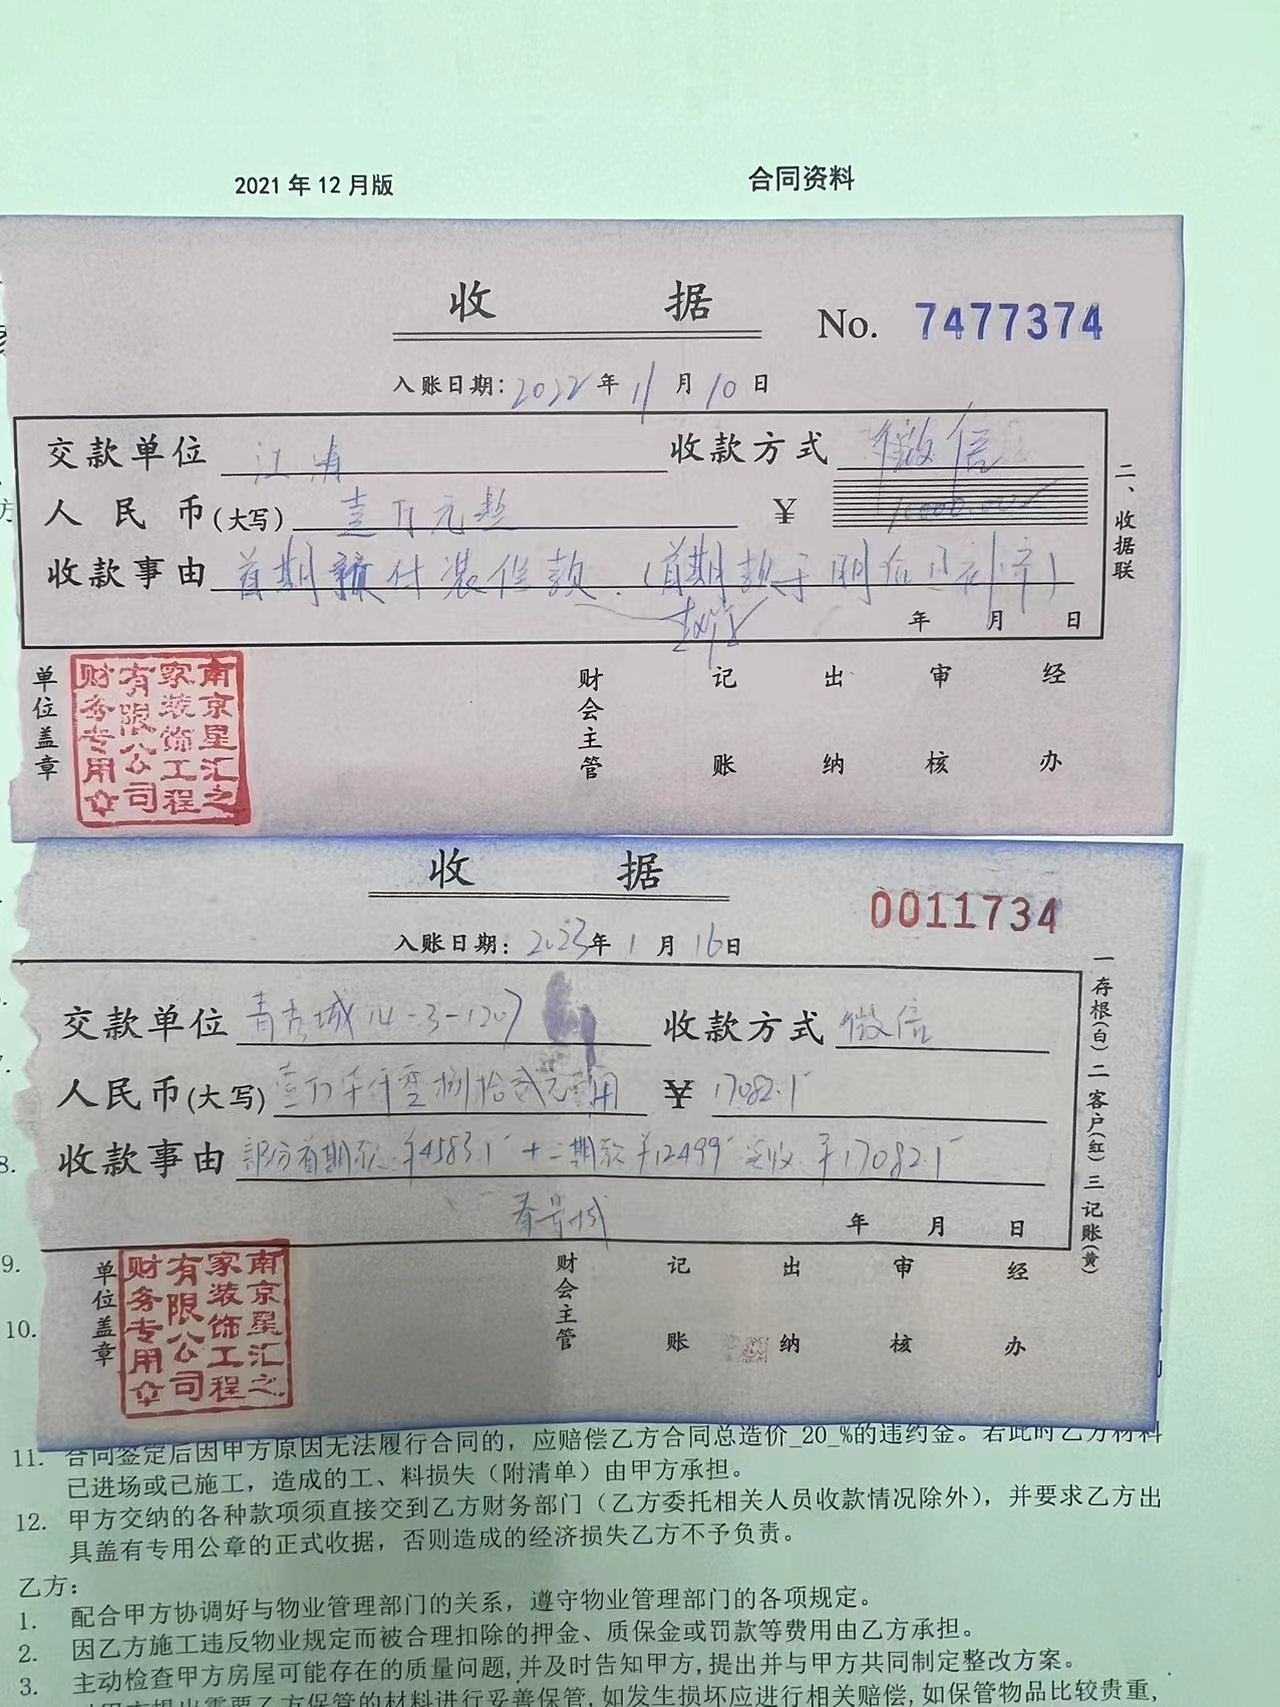 2021年12月版 合同资料
收 据
No. 7477374
入账日期：2022年11月10日
交款单位 收款方式 微信
人民币(大写) 壹万元整 ¥ 10000.00
收款事由 首期预付装修款.(首期款于
年 月 日
二、收据联
单位盖章
南京星汇之家装饰工程有限公司财务专用
财会主管 记账 出纳 审核 经办
收 据
0011734
入账日期：2023年1月16日
交款单位 14-3-1207 收款方式 微信
人民币(大写) 壹万柒仟零捌拾贰元 ¥ 17082.1
收款事由 部分首期款¥4583.1+二期款¥12499 ¥17082.1
年 月 日
一存根(白)二客户(红)三记账(黄)
单位盖章
南京星汇之家装饰工程有限公司财务专用
财会主管 记账 出纳 审核 经办
8.
9.
10.
11. 合同签定后因甲方原因无法履行合同的，应赔偿乙方合同总造价_20_%的违约金。若此时乙方材料
已进场或已施工，造成的工、料损失（附清单）由甲方承担。
12. 甲方交纳的各种款项须直接交到乙方财务部门（乙方委托相关人员收款情况除外），并要求乙方出
具盖有专用公章的正式收据，否则造成的经济损失乙方不予负责。
乙方：
1. 配合甲方协调好与物业管理部门的关系，遵守物业管理部门的各项规定。
2. 因乙方施工违反物业规定而被合理扣除的押金、质保金或罚款等费用由乙方承担。
3. 主动检查甲方房屋可能存在的质量问题，并及时告知甲方，提出并与甲方共同制定整改方案。
对甲方提出需要乙方保管的材料进行妥善保管，如发生损坏应进行相关赔偿，如保管物品比较贵重，